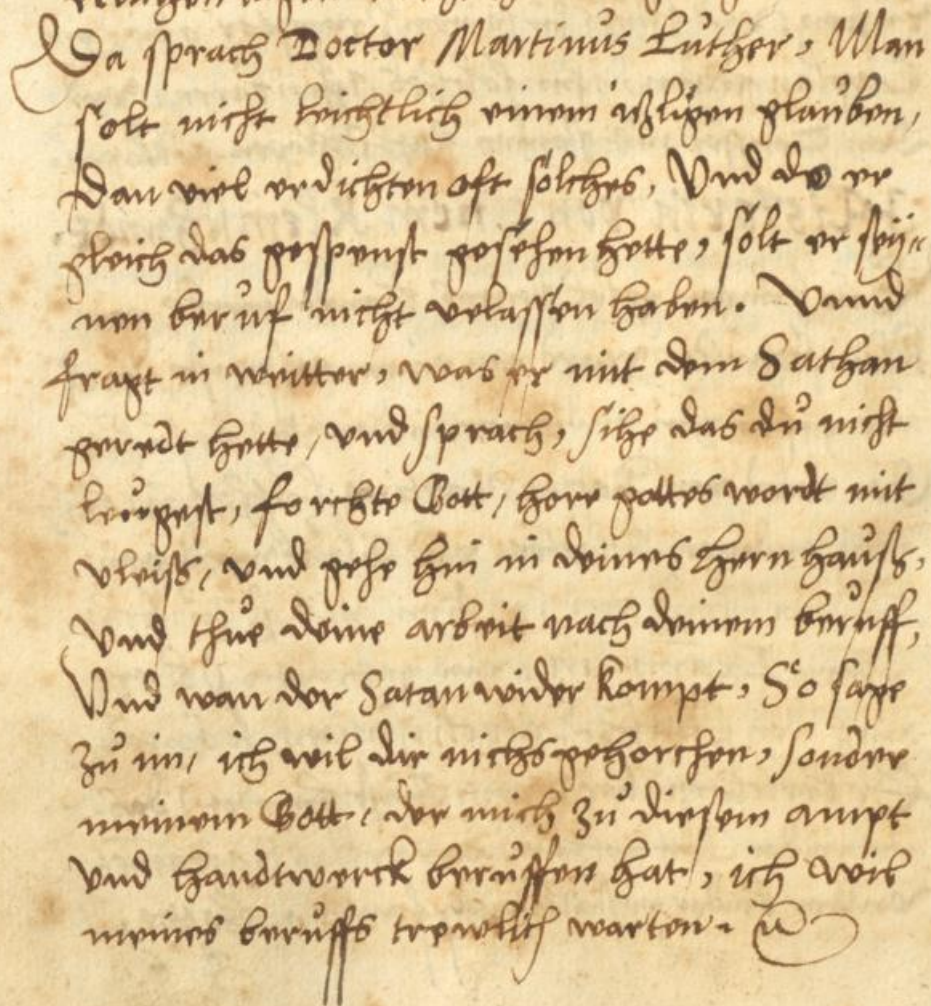 Da sprach Doctor Martinus Luther, Man
solt nicht leichtlich einem itzligen glauben,
Dan viel erdichten oft solches, Und do er
gleich das gespenst gesehen hette, solt er sey-
nen beruf nicht velassen haben. Vnnd
fragt in weitter, was er mit dem Sathan
geredt hette, vnd sprach, sihe das du nicht
leugest, forchte Gott, hore gottes wordt mit
vleiss, vnd gehe hin in deines hern hauss,
Vnd thue deine arbeit nach deinem beruff,
Vnd wan der Satan wider kompt, So sage
zu im, ich wil dir nichs gehorchen, sonder
meinem Gott, der mich zu diesem ampt
vnd handtwerck beruffen hat, ich wil
meines beruffs trewlich warten.